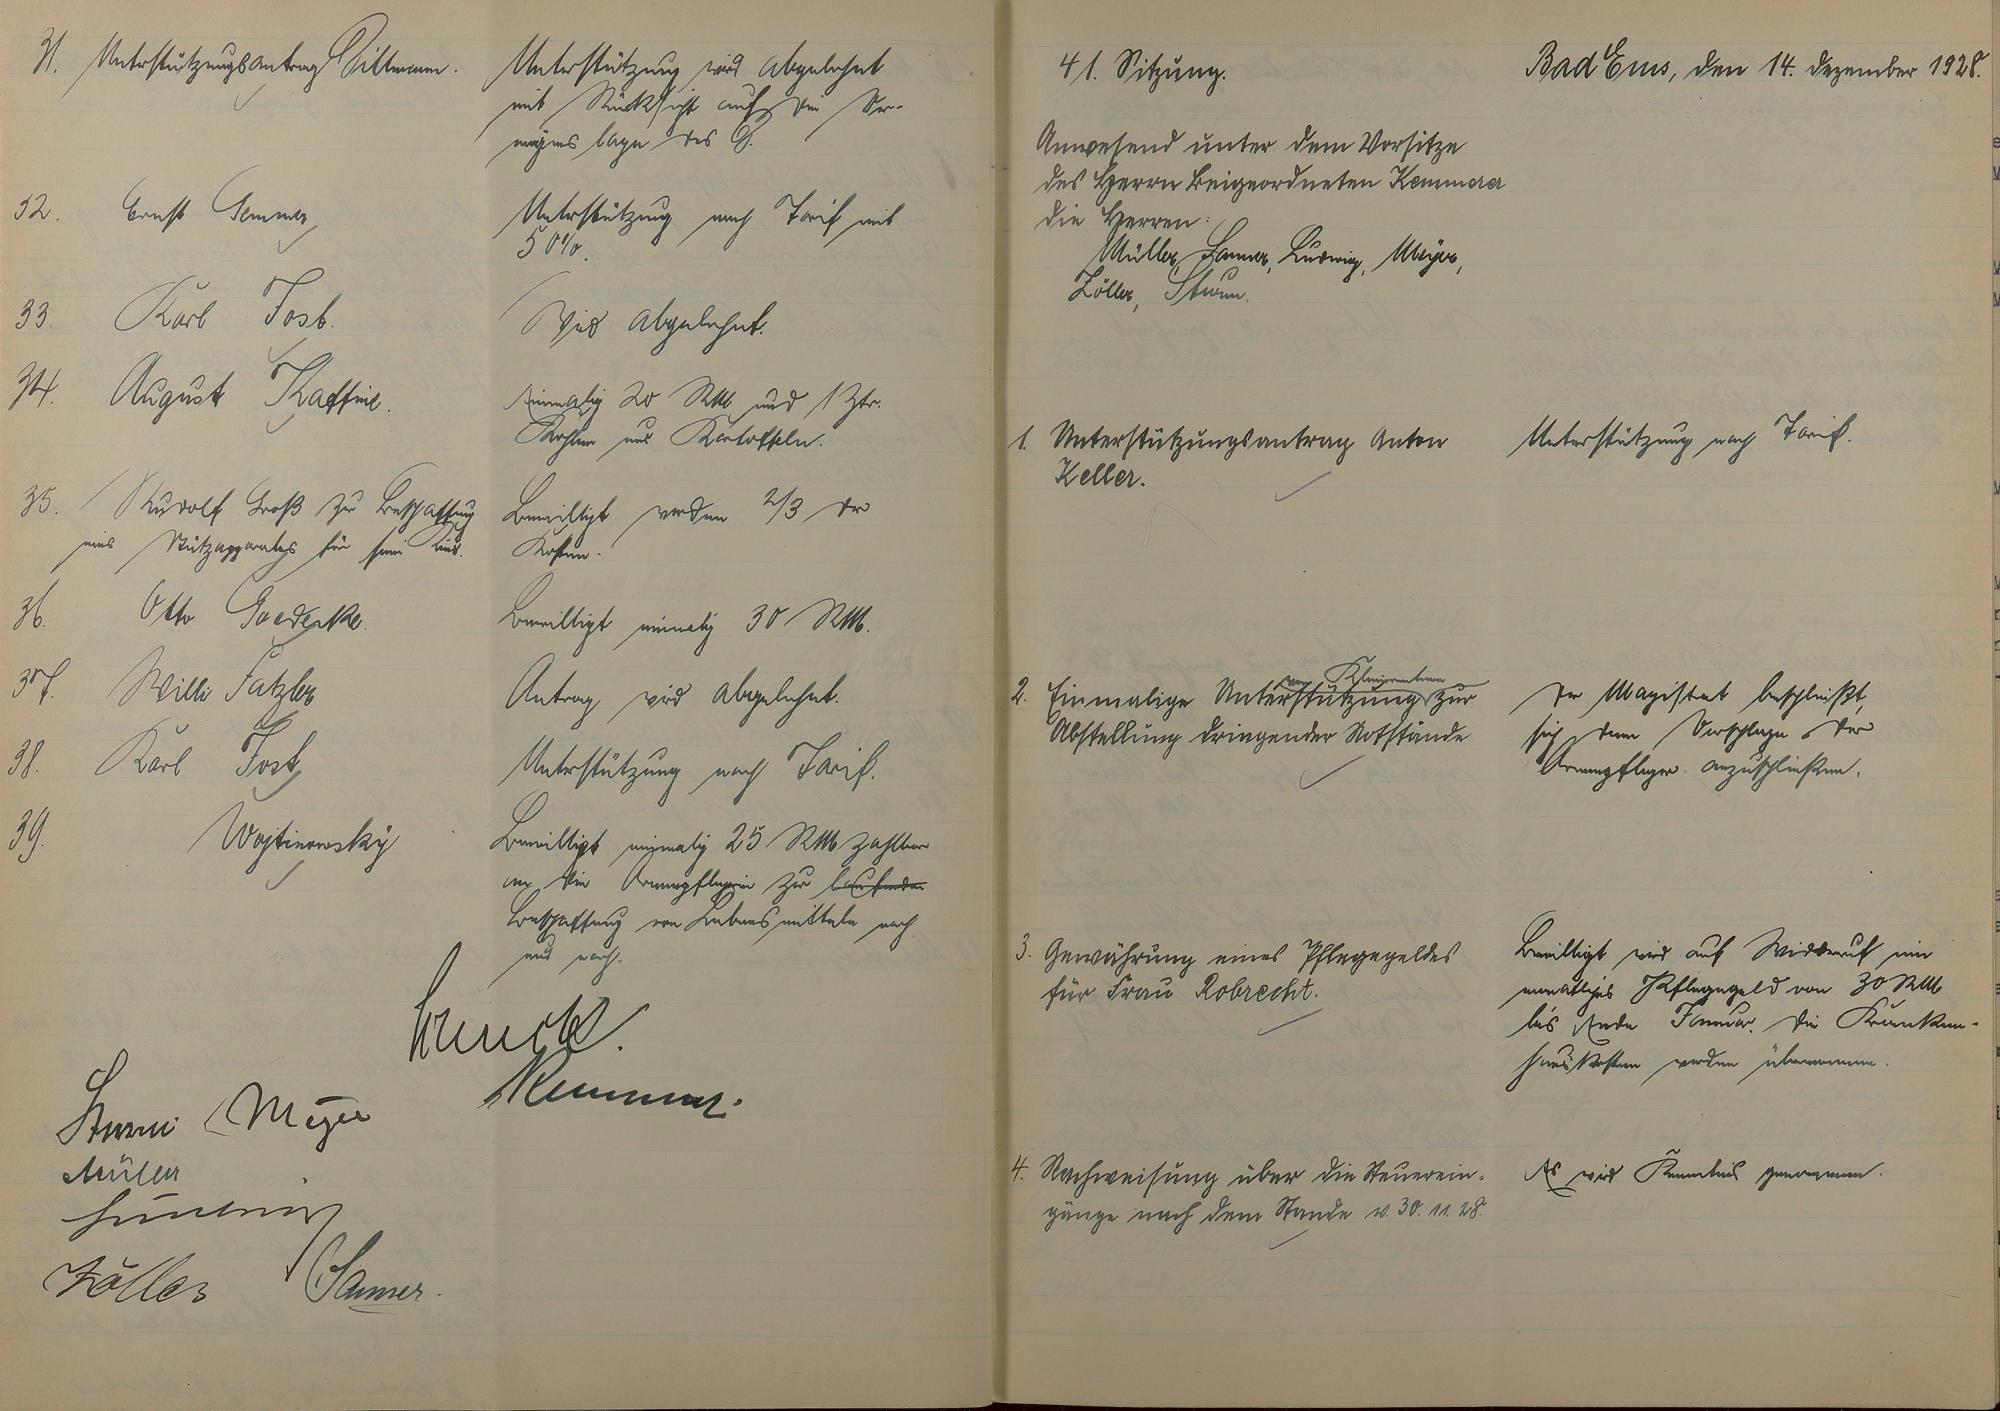 31. Unterstützungsantrag Dittmann.
Unterstützung wird abgelehnt
mit Rücksicht auf die Ver-
mögens lage des D.
32. Ernst Gemmer
Unterstützung nach Tarif mit
50%.
33. Karl Jost.
Wird abgelehnt.
34. August Kaffine.
Einmalig 20 RM und 1 Ztr.
Kohlen und Kartoffeln.
35. Rudolf Groß zur Beschaffung
eines Stützapparates für sein Kind.
Bewilligt werden 2/3 der
Kosten.
36. Otto Goedecke.
Bewilligt einmalig 30 RM.
37. Willi Fatzler
Antrag wird abgelehnt.
38. Karl Jost
Unterstützung nach Tarif.
39. Wojtinowsky
Bewilligt einmalig 25 RM zahlbar
an die Armenpflegerin zur laufenden
Beschaffung von Lebensmitteln nach
und nach.
Kemmerer.
Sturm Meyer
Müller
Ludwig
Zöller Sanner.
41. Sitzung.
Bad Ems, den 14. Dezember 1928.
Anwesend unter dem Vorsitze
des Herrn Beigeordneten Kemmerer
die Herren:
Müller, Sanner, Ludwig, Meyer,
Zöller, Sturm.
1. Unterstützungsantrag Anton
Keller.
Unterstützung nach Tarif.
von Kleinrentnern
2. Einmalige Unterstützung zur
Abstellung dringender Notstände
Der Magistrat beschließt,
sich dem Vorschlage der
Armenpfleger anzuschließen.
3. Gewährung eines Pflegegeldes
für Frau Robrecht.
Bewilligt wird auf Widerruf ein
monatliches Pflegegeld von 30 RM
bis Ende Januar. Die Kranken-
hauskosten werden übernommen.
4. Nachweisung über die Steuerein-
gänge nach dem Stande v. 30. 11. 28.
Es wird Kenntnis genommen.